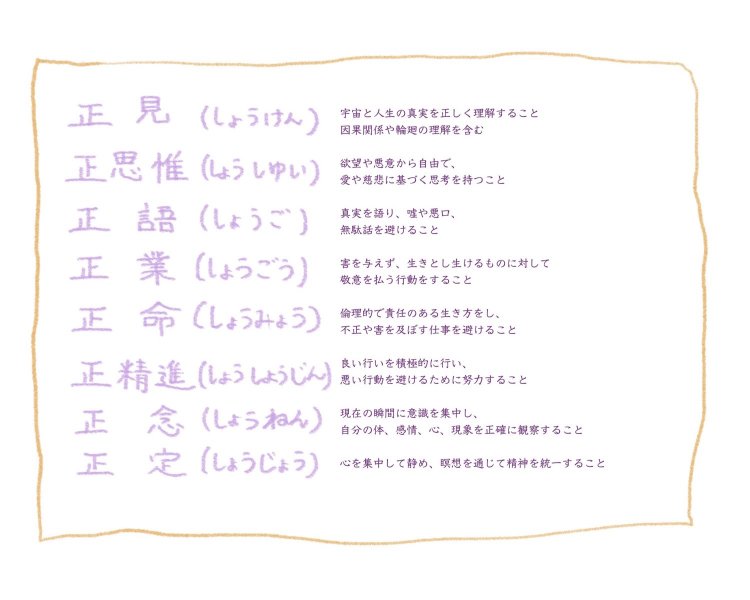 正見(しょうけん)
宇宙と人生の真実を正しく理解すること
因果関係や輪廻の理解を含む
正思惟(しょうしゆい)
欲望や悪意から自由で、
愛や慈悲に基づく思考を持つこと
正語(しょうご)
真実を語り、嘘や悪口、
無駄話を避けること
正業(しょうごう)
害を与えず、生きとし生けるものに対して
敬意を払う行動をすること
正命(しょうみょう)
倫理的で責任のある生き方をし、
不正や害を及ぼす仕事を避けること
正精進(しょうしょうじん)
良い行いを積極的に行い、
悪い行動を避けるために努力すること
正念(しょうねん)
現在の瞬間に意識を集中し、
自分の体、感情、心、現象を正確に観察すること
正定(しょうじょう)
心を集中して静め、瞑想を通じて精神を統一すること